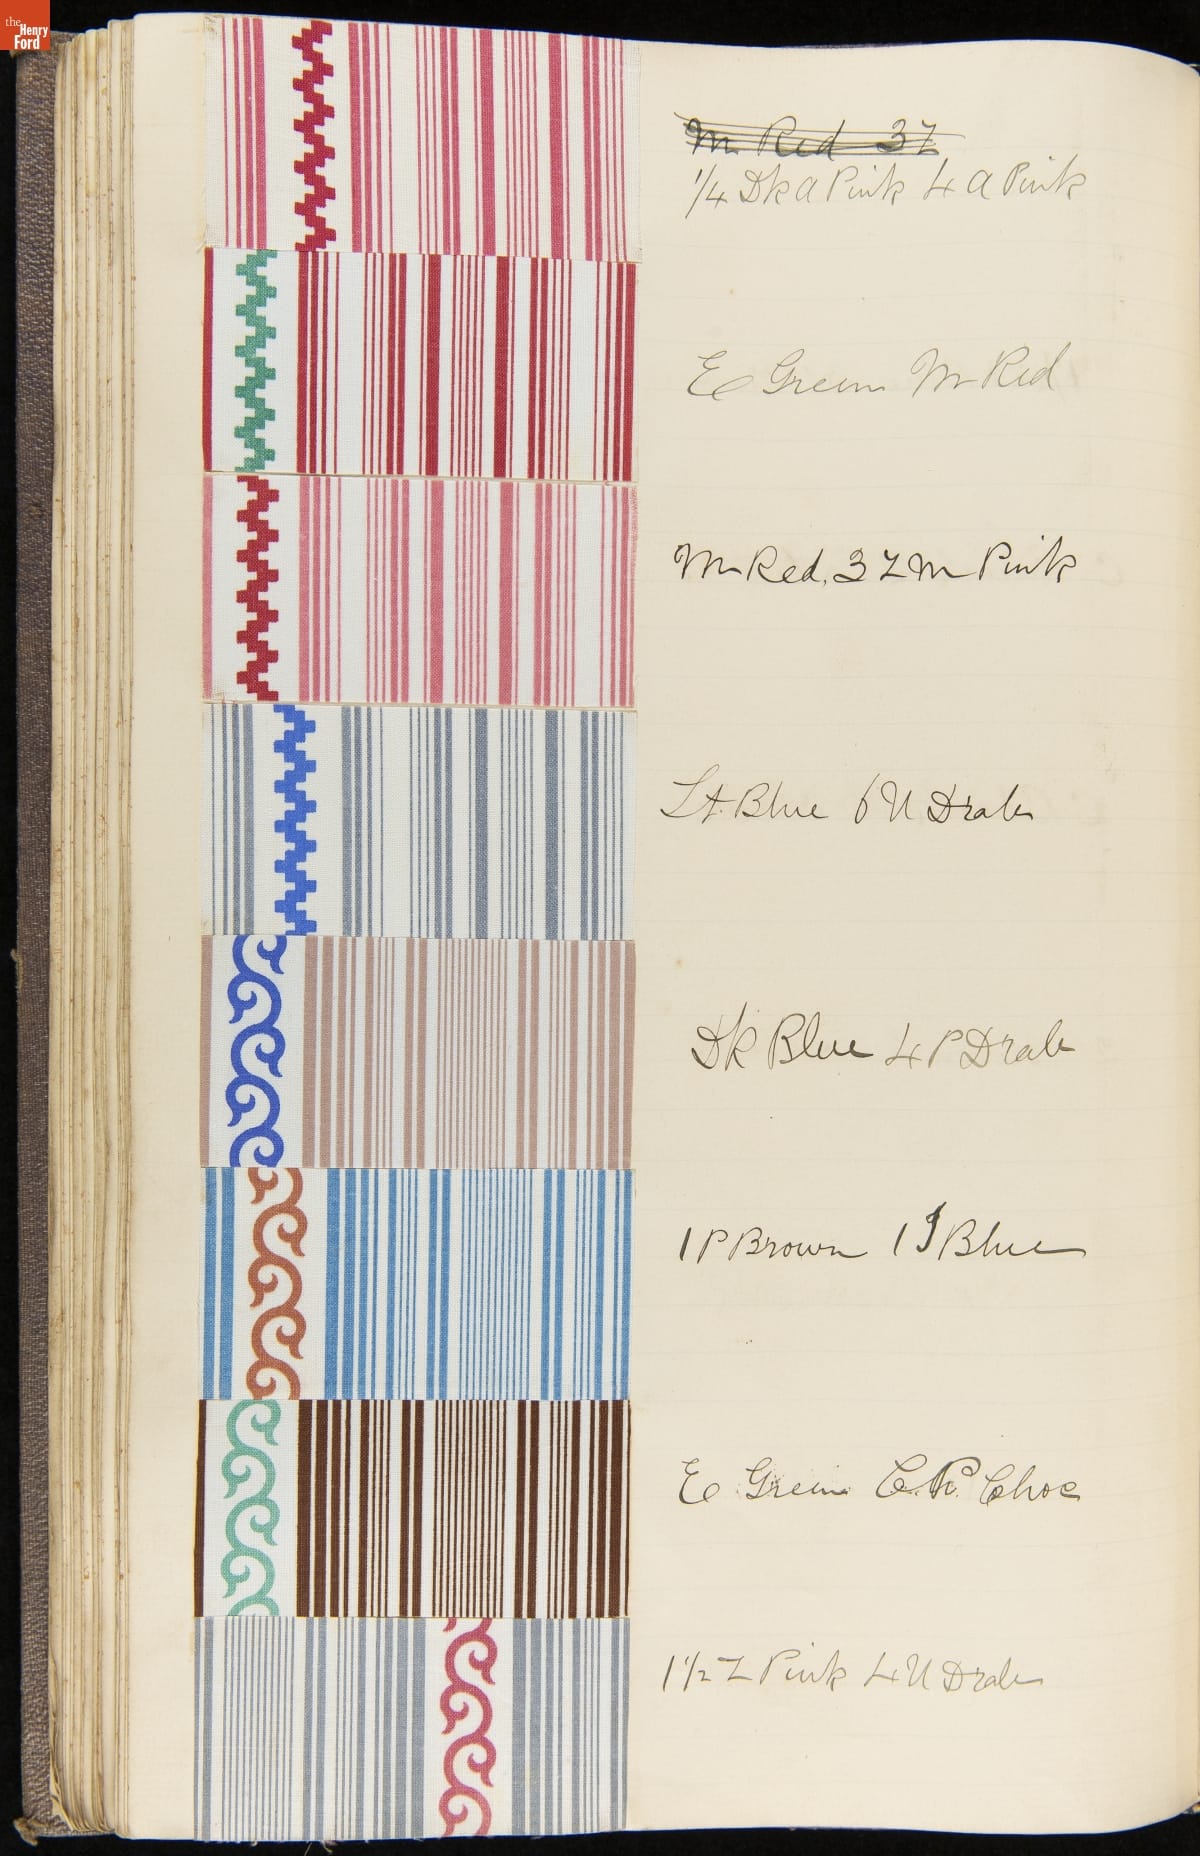 the
Henry
Ford
M Red 3Z
1/4 Dk A Pink 4 A Pink
E Green M Red
M Red. 3 Z M Pink
Lt Blue 6 U Drab
Dk Blue 4 P Drab
1 P Brown 1 J Blue
E Green C.P. Choc
1 1/2 Z Pink 4 U Drab